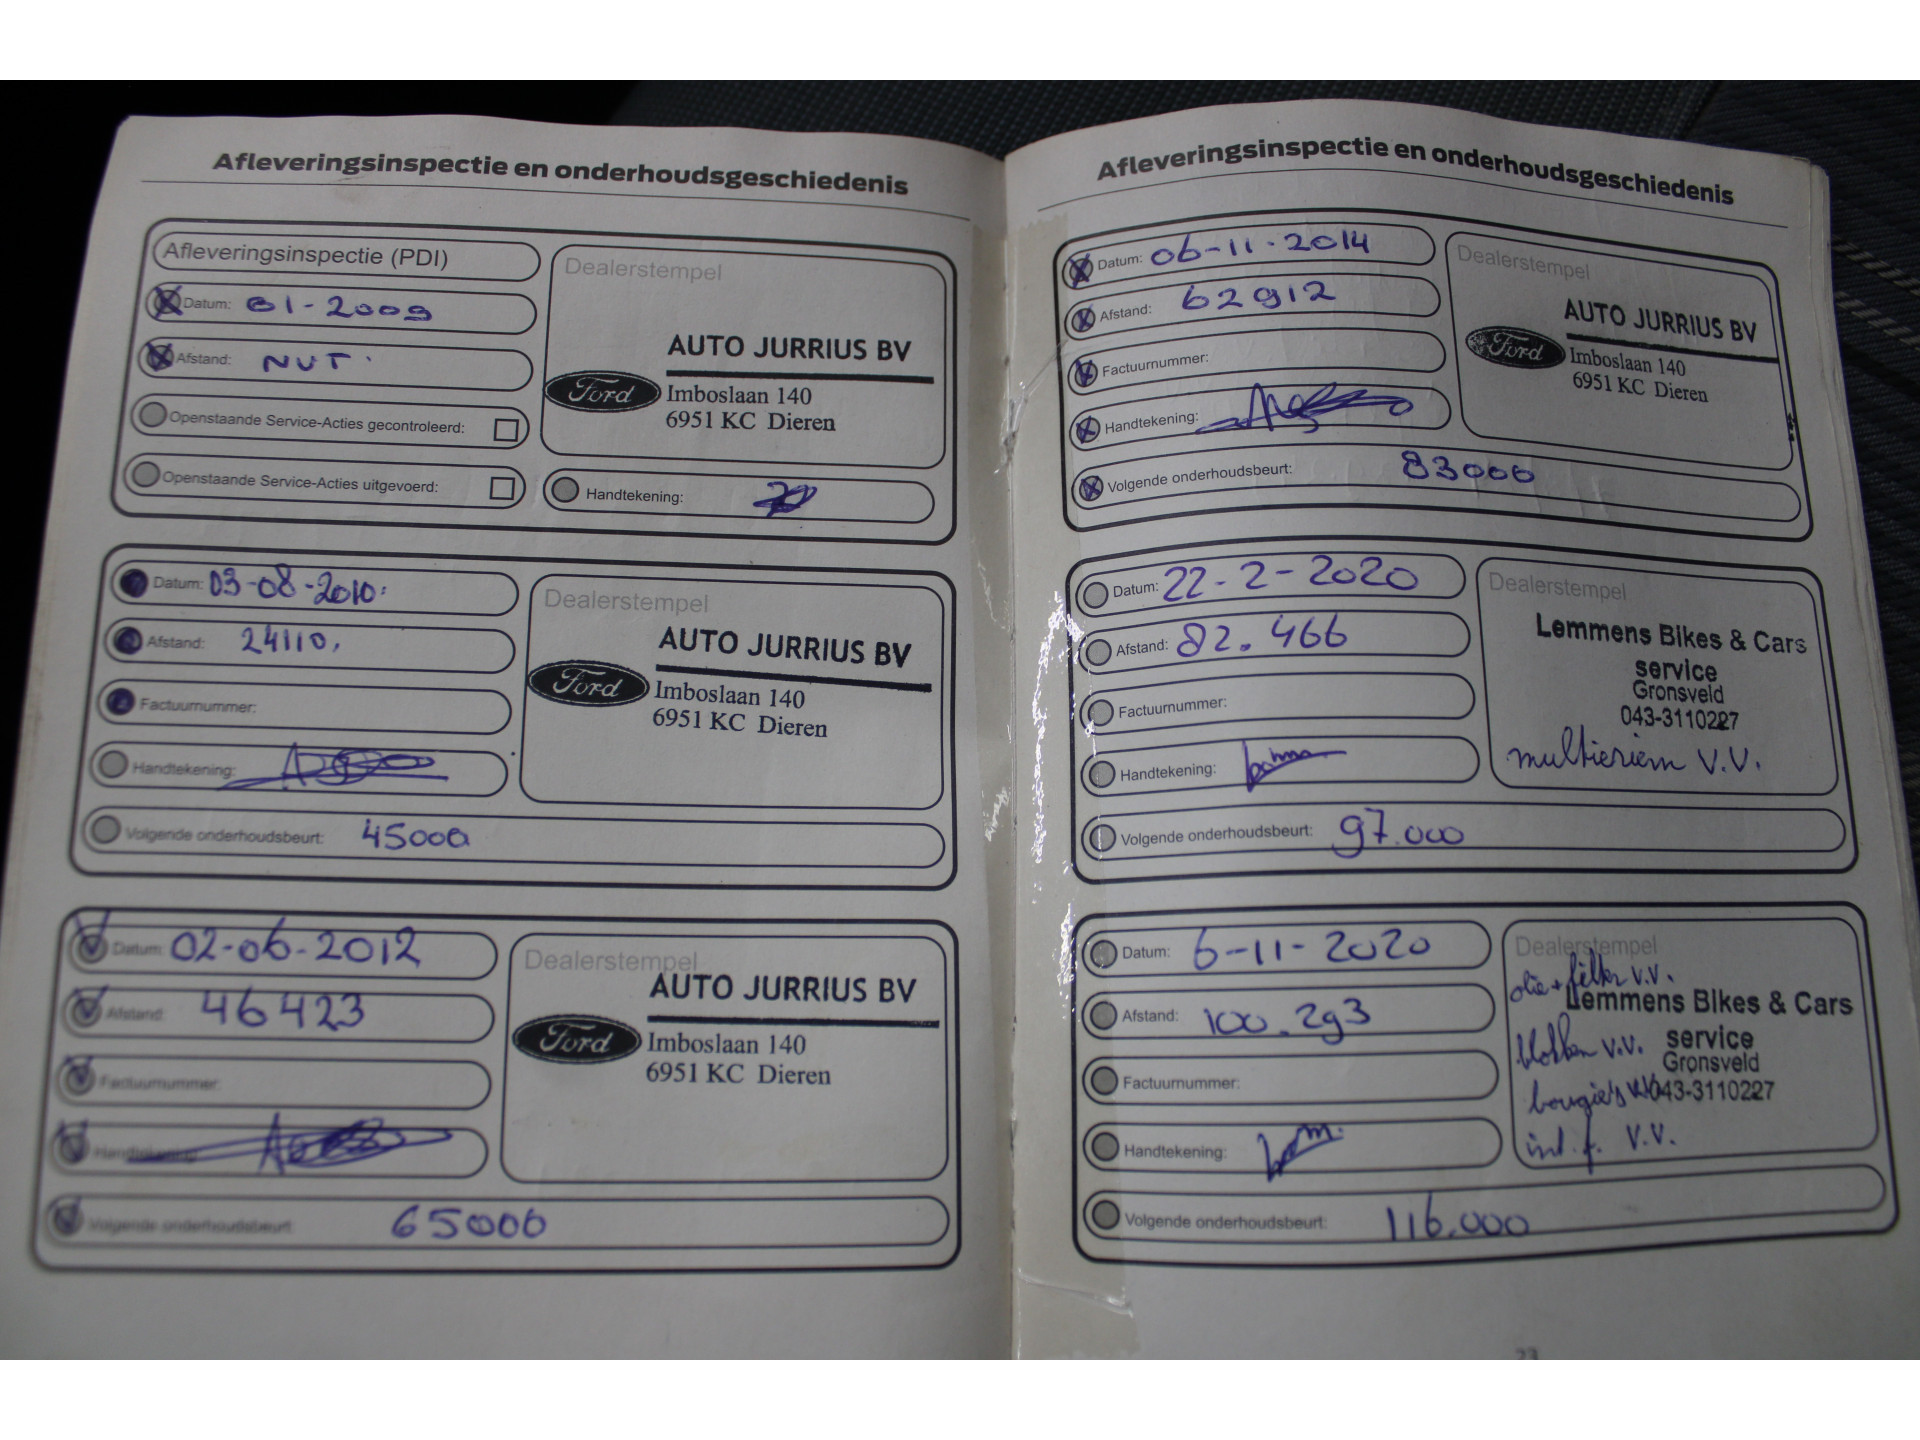 Afleveringsinspectie en onderhoudsgeschiedenis
Afleveringsinspectie (PDI)
Datum: 01-2009
Afstand: NUT
Openstaande Service-Acties gecontroleerd:
Openstaande Service-Acties uitgevoerd:
Dealerstempel
AUTO JURRIUS BV
Ford
Imboslaan 140
6951 KC Dieren
Handtekening:
Datum: 03-08-2010
Afstand: 24110
Factuurnummer:
Handtekening:
Volgende onderhoudsbeurt: 45000
Dealerstempel
AUTO JURRIUS BV
Ford
Imboslaan 140
6951 KC Dieren
Datum: 02-06-2012
Afstand: 46423
Factuurnummer:
Handtekening:
Volgende onderhoudsbeurt: 65000
Dealerstempel
AUTO JURRIUS BV
Ford
Imboslaan 140
6951 KC Dieren
Afleveringsinspectie en onderhoudsgeschiedenis
Datum: 06-11-2014
Afstand: 62912
Factuurnummer:
Handtekening:
Volgende onderhoudsbeurt: 83000
Dealerstempel
AUTO JURRIUS BV
Ford
Imboslaan 140
6951 KC Dieren
Datum: 22-2-2020
Afstand: 82.466
Factuurnummer:
Handtekening:
Volgende onderhoudsbeurt: 97.000
Dealerstempel
Lemmens Bikes & Cars
service
Gronsveld
043-3110227
multieriem V.V.
Datum: 6-11-2020
Afstand: 100.293
Factuurnummer:
Handtekening:
Volgende onderhoudsbeurt: 116.000
Dealerstempel
olie + filter V.V.
Lemmens Bikes & Cars
blokken V.V.
service
Gronsveld
bougie's V.V.
043-3110227
int. f. V.V.
23